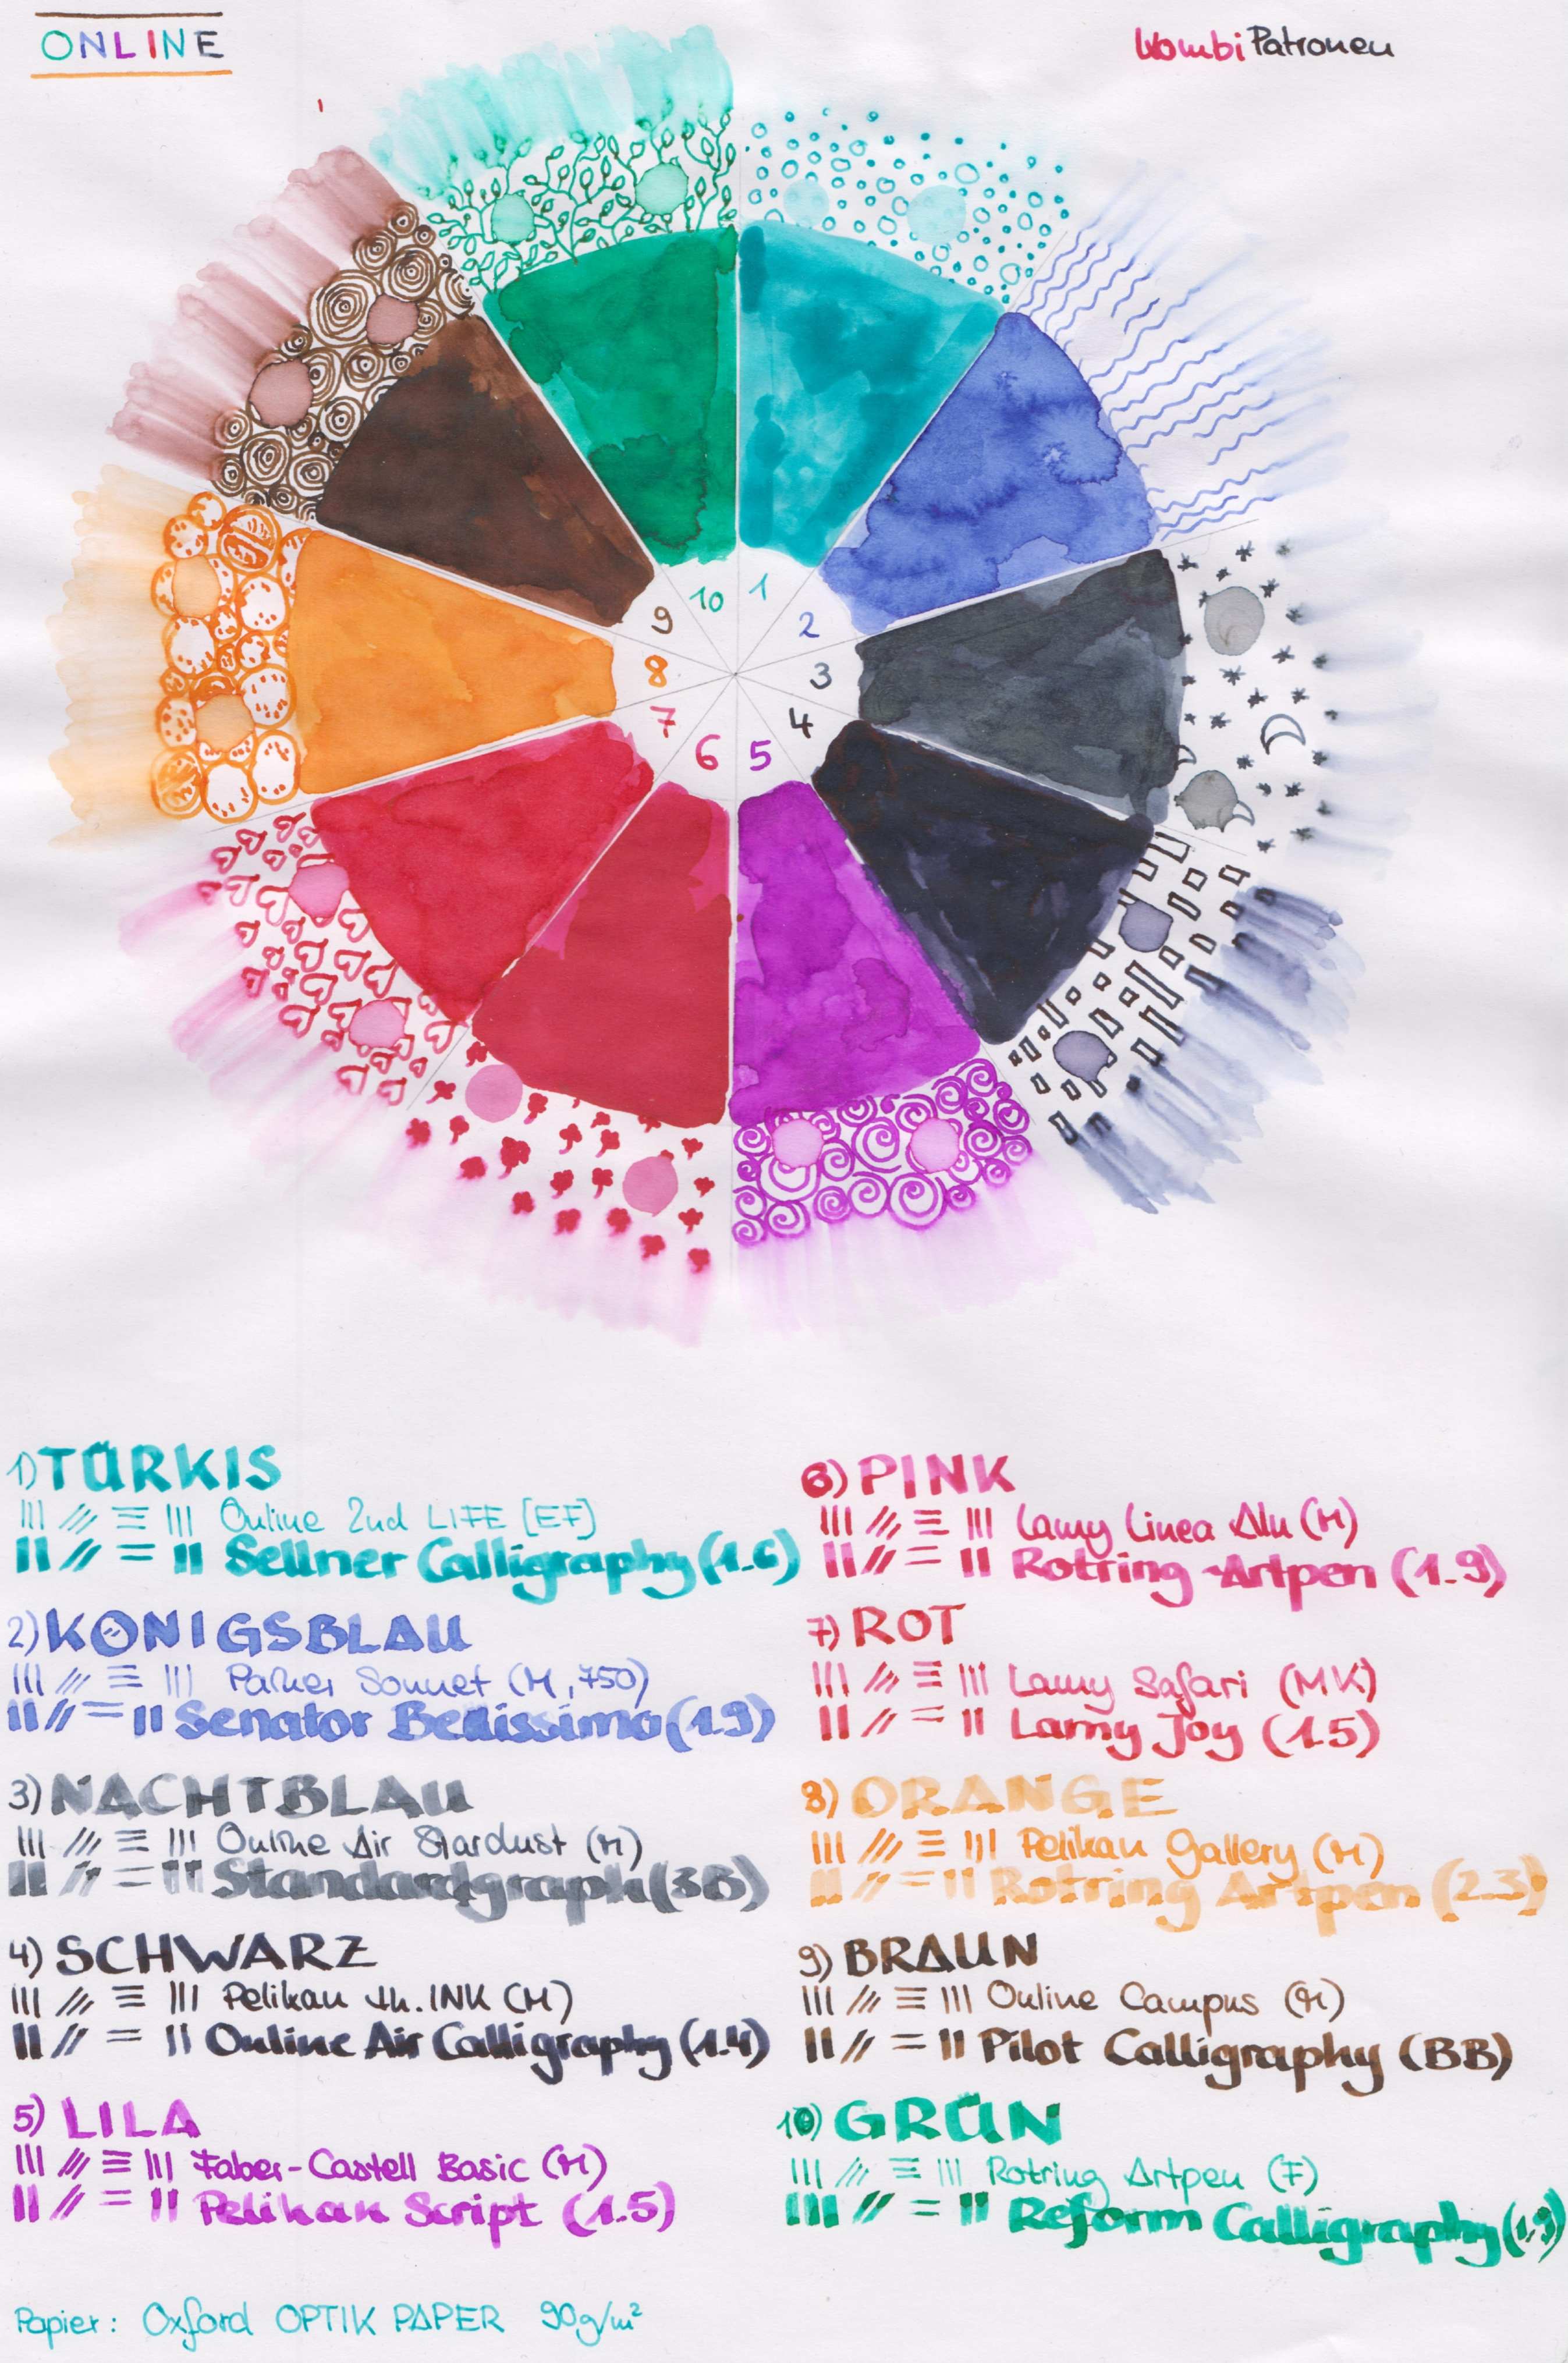 ONLINE
KombiPatronen
10 1
9 2
8 3
7 4
6 5
1) TÜRKIS
Online 2nd LIFE (EF)
Sellner Calligraphy (1.6)
2) KÖNIGSBLAU
Parker Sonnet (M, 750)
Senator Bellissimo (1.9)
3) NACHTBLAU
Online Air Stardust (M)
Standardgraph (3B)
4) SCHWARZ
Pelikan th.INK (M)
Online Air Calligraphy (1.4)
5) LILA
Faber-Castell Basic (M)
Pelikan Script (1.5)
6) PINK
Lamy Linea Alu (M)
Rotring Artpen (1.9)
7) ROT
Lamy Safari (MK)
Lamy Joy (1.5)
8) ORANGE
Pelikan Gallery (M)
Rotring Artpen (2.3)
9) BRAUN
Online Campus (M)
Pilot Calligraphy (BB)
10) GRÜN
Rotring Artpen (F)
Reform Calligraphy (1.9)
Papier: Oxford OPTIK PAPER 90g/m²